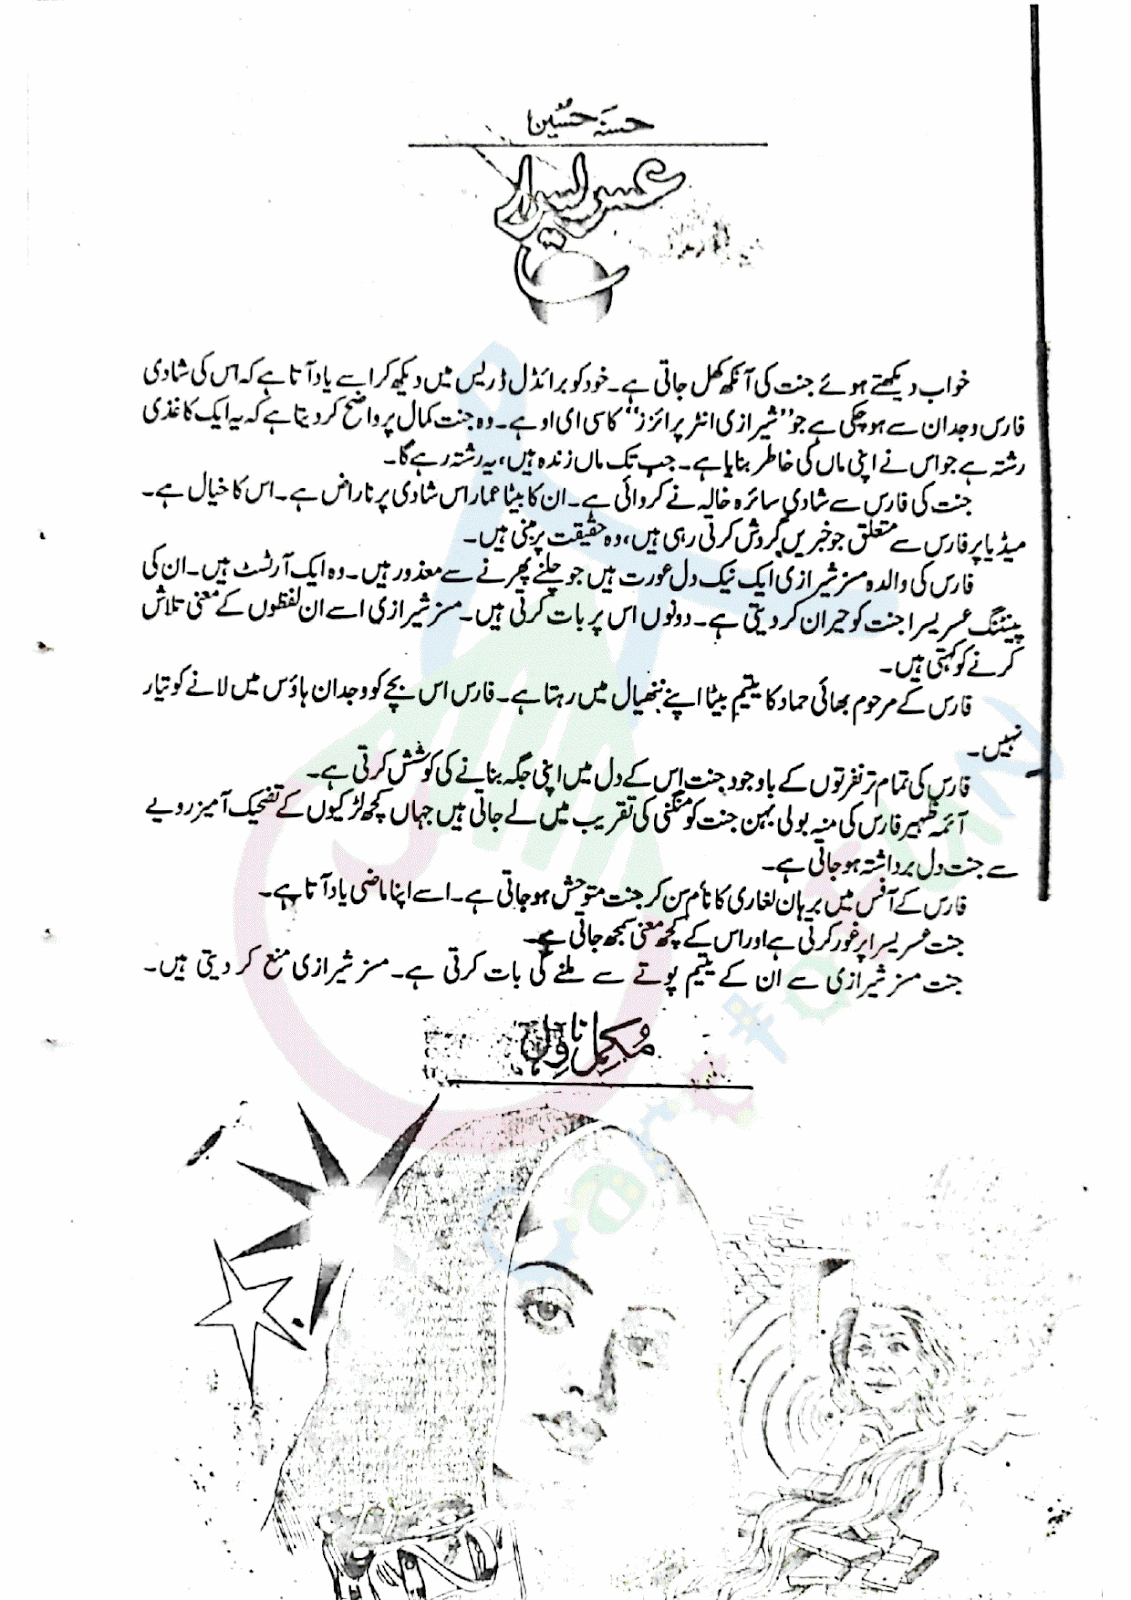 حسنہ حسین
عسریسرا
خواب دیکھتے ہوئے جنت کی آنکھ کھل جاتی ہے۔ خود کو برائڈل ڈریس میں دیکھ کر اسے یاد آتا ہے کہ اس کی شادی
فارس وجدان سے ہو چکی ہے جو ”شیرازی انٹرپرائزز“ کا سی ای او ہے۔ وہ جنت کمال پر واضح کر دیتا ہے کہ یہ ایک کاغذی
رشتہ ہے جو اس نے اپنی ماں کی خاطر بنایا ہے۔ جب تک ماں زندہ ہیں، یہ رشتہ رہے گا۔
جنت کی فارس سے شادی سائرہ خالہ نے کروائی ہے۔ ان کا بیٹا عمار اس شادی پر ناراض ہے۔ اس کا خیال ہے۔
میڈیا پر فارس سے متعلق جو خبریں گردش کرتی رہی ہیں، وہ حقیقت پر مبنی ہیں۔
فارس کی والدہ مسز شیرازی ایک نیک دل عورت ہیں جو چلنے پھرنے سے معذور ہیں۔ وہ ایک آرٹسٹ ہیں۔ ان کی
پینٹنگ عسریسرا جنت کو حیران کر دیتی ہے۔ دونوں اس پر بات کرتی ہیں۔ مسز شیرازی اسے ان لفظوں کے معنی تلاش
کرنے کو کہتی ہیں۔
فارس کے مرحوم بھائی حماد کا یتیم بیٹا اپنے ننھیال میں رہتا ہے۔ فارس اس بچے کو وجدان ہاؤس میں لانے کو تیار
نہیں۔
فارس کی تمام تر نفرتوں کے باوجود جنت اس کے دل میں اپنی جگہ بنانے کی کوشش کرتی ہے۔
آئمہ ظہیر فارس کی منہ بولی بہن جنت کو منگنی کی تقریب میں لے جاتی ہیں جہاں کچھ لڑکیوں کے تضحیک آمیز رویے
سے جنت دل برداشتہ ہو جاتی ہے۔
فارس کے آفس میں برہان لغاری کا نام سن کر جنت متوحش ہو جاتی ہے۔ اسے اپنا ماضی یاد آتا ہے۔
جنت عسریسرا پر غور کرتی ہے اور اس کے کچھ معنی سمجھ جاتی ہے۔
جنت مسز شیرازی سے ان کے یتیم پوتے سے ملنے کی بات کرتی ہے۔ مسز شیرازی منع کر دیتی ہیں۔
مکمل ناول